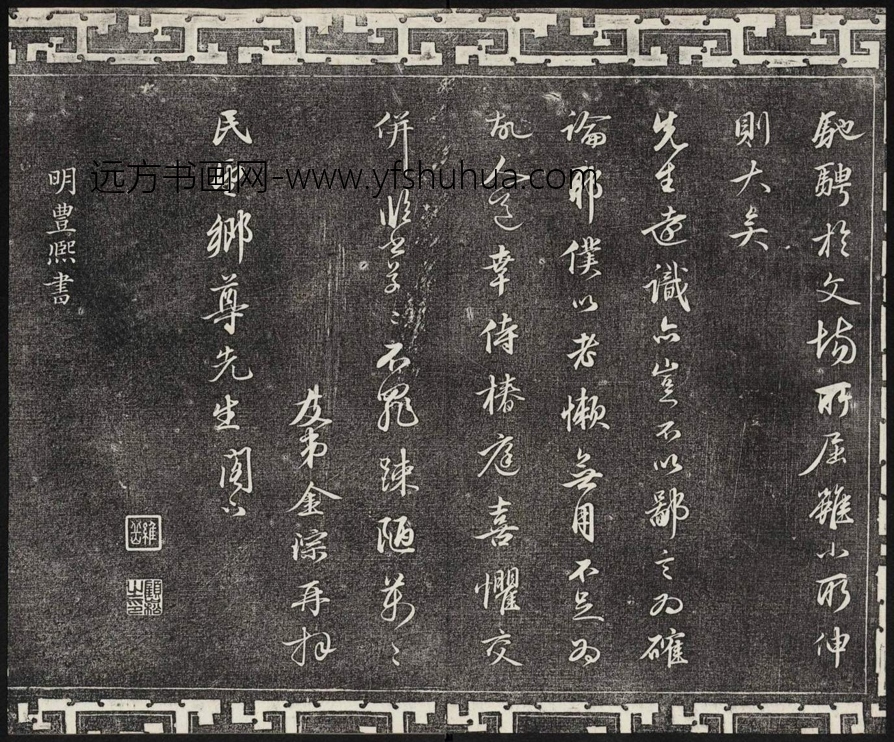 馳騁於文場所屈雖小所伸
則大矣
先生遠識亦豈不以鄙言為確
論耶僕以老懶無用不足為
幸侍椿庭喜懼交
併 不罪踈陋萬〻
友弟金淙再拜
民 鄉尊先生閣下
明豊熙書
远方书画网-www.yfshuhua.com